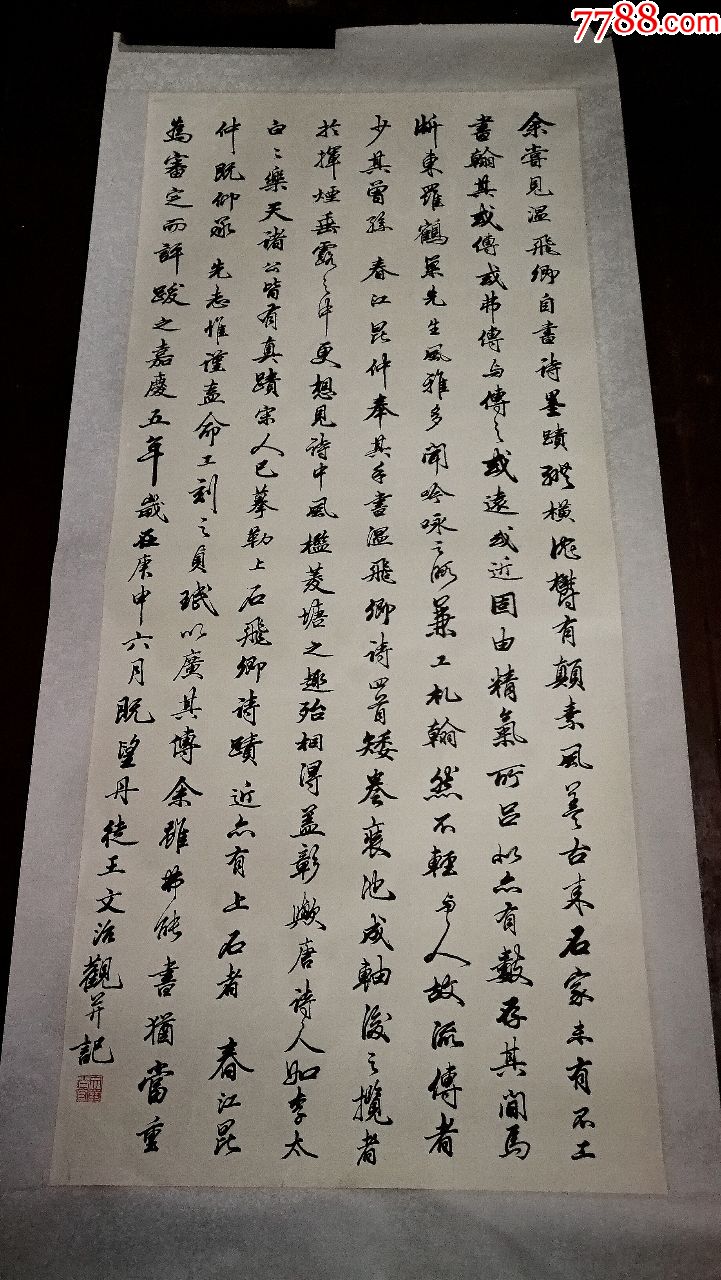 7788.com
余嘗見溫飛卿自書詩墨蹟縱橫沈欝有顛素風葢古来石家未有不工
書翰其或傳或弗傳与傳之或遠或近固由精氣所呂然亦有數存其間焉
浙東羅鶴峯先生風雅多聞吟咏之所兼工札翰然不輕与人故流傳者
少其曾孫春江昆仲奉其手書溫飛卿詩四首矮卷裝池成軸後之攬者
於揮煙垂露之中更想見詩中風檻菱塘之趣殆相得葢彰㱔唐詩人如李太
白白樂天諸公皆有真蹟宋人已摹勒上石飛卿詩蹟近亦有上石者春江昆
仲既仰承先志惟謹盍命工刻之貞珉以廣其傳余雖弗能書猶當重
為審定而評跋之嘉慶五年歲在庚申六月既望丹徒王文治觀并記